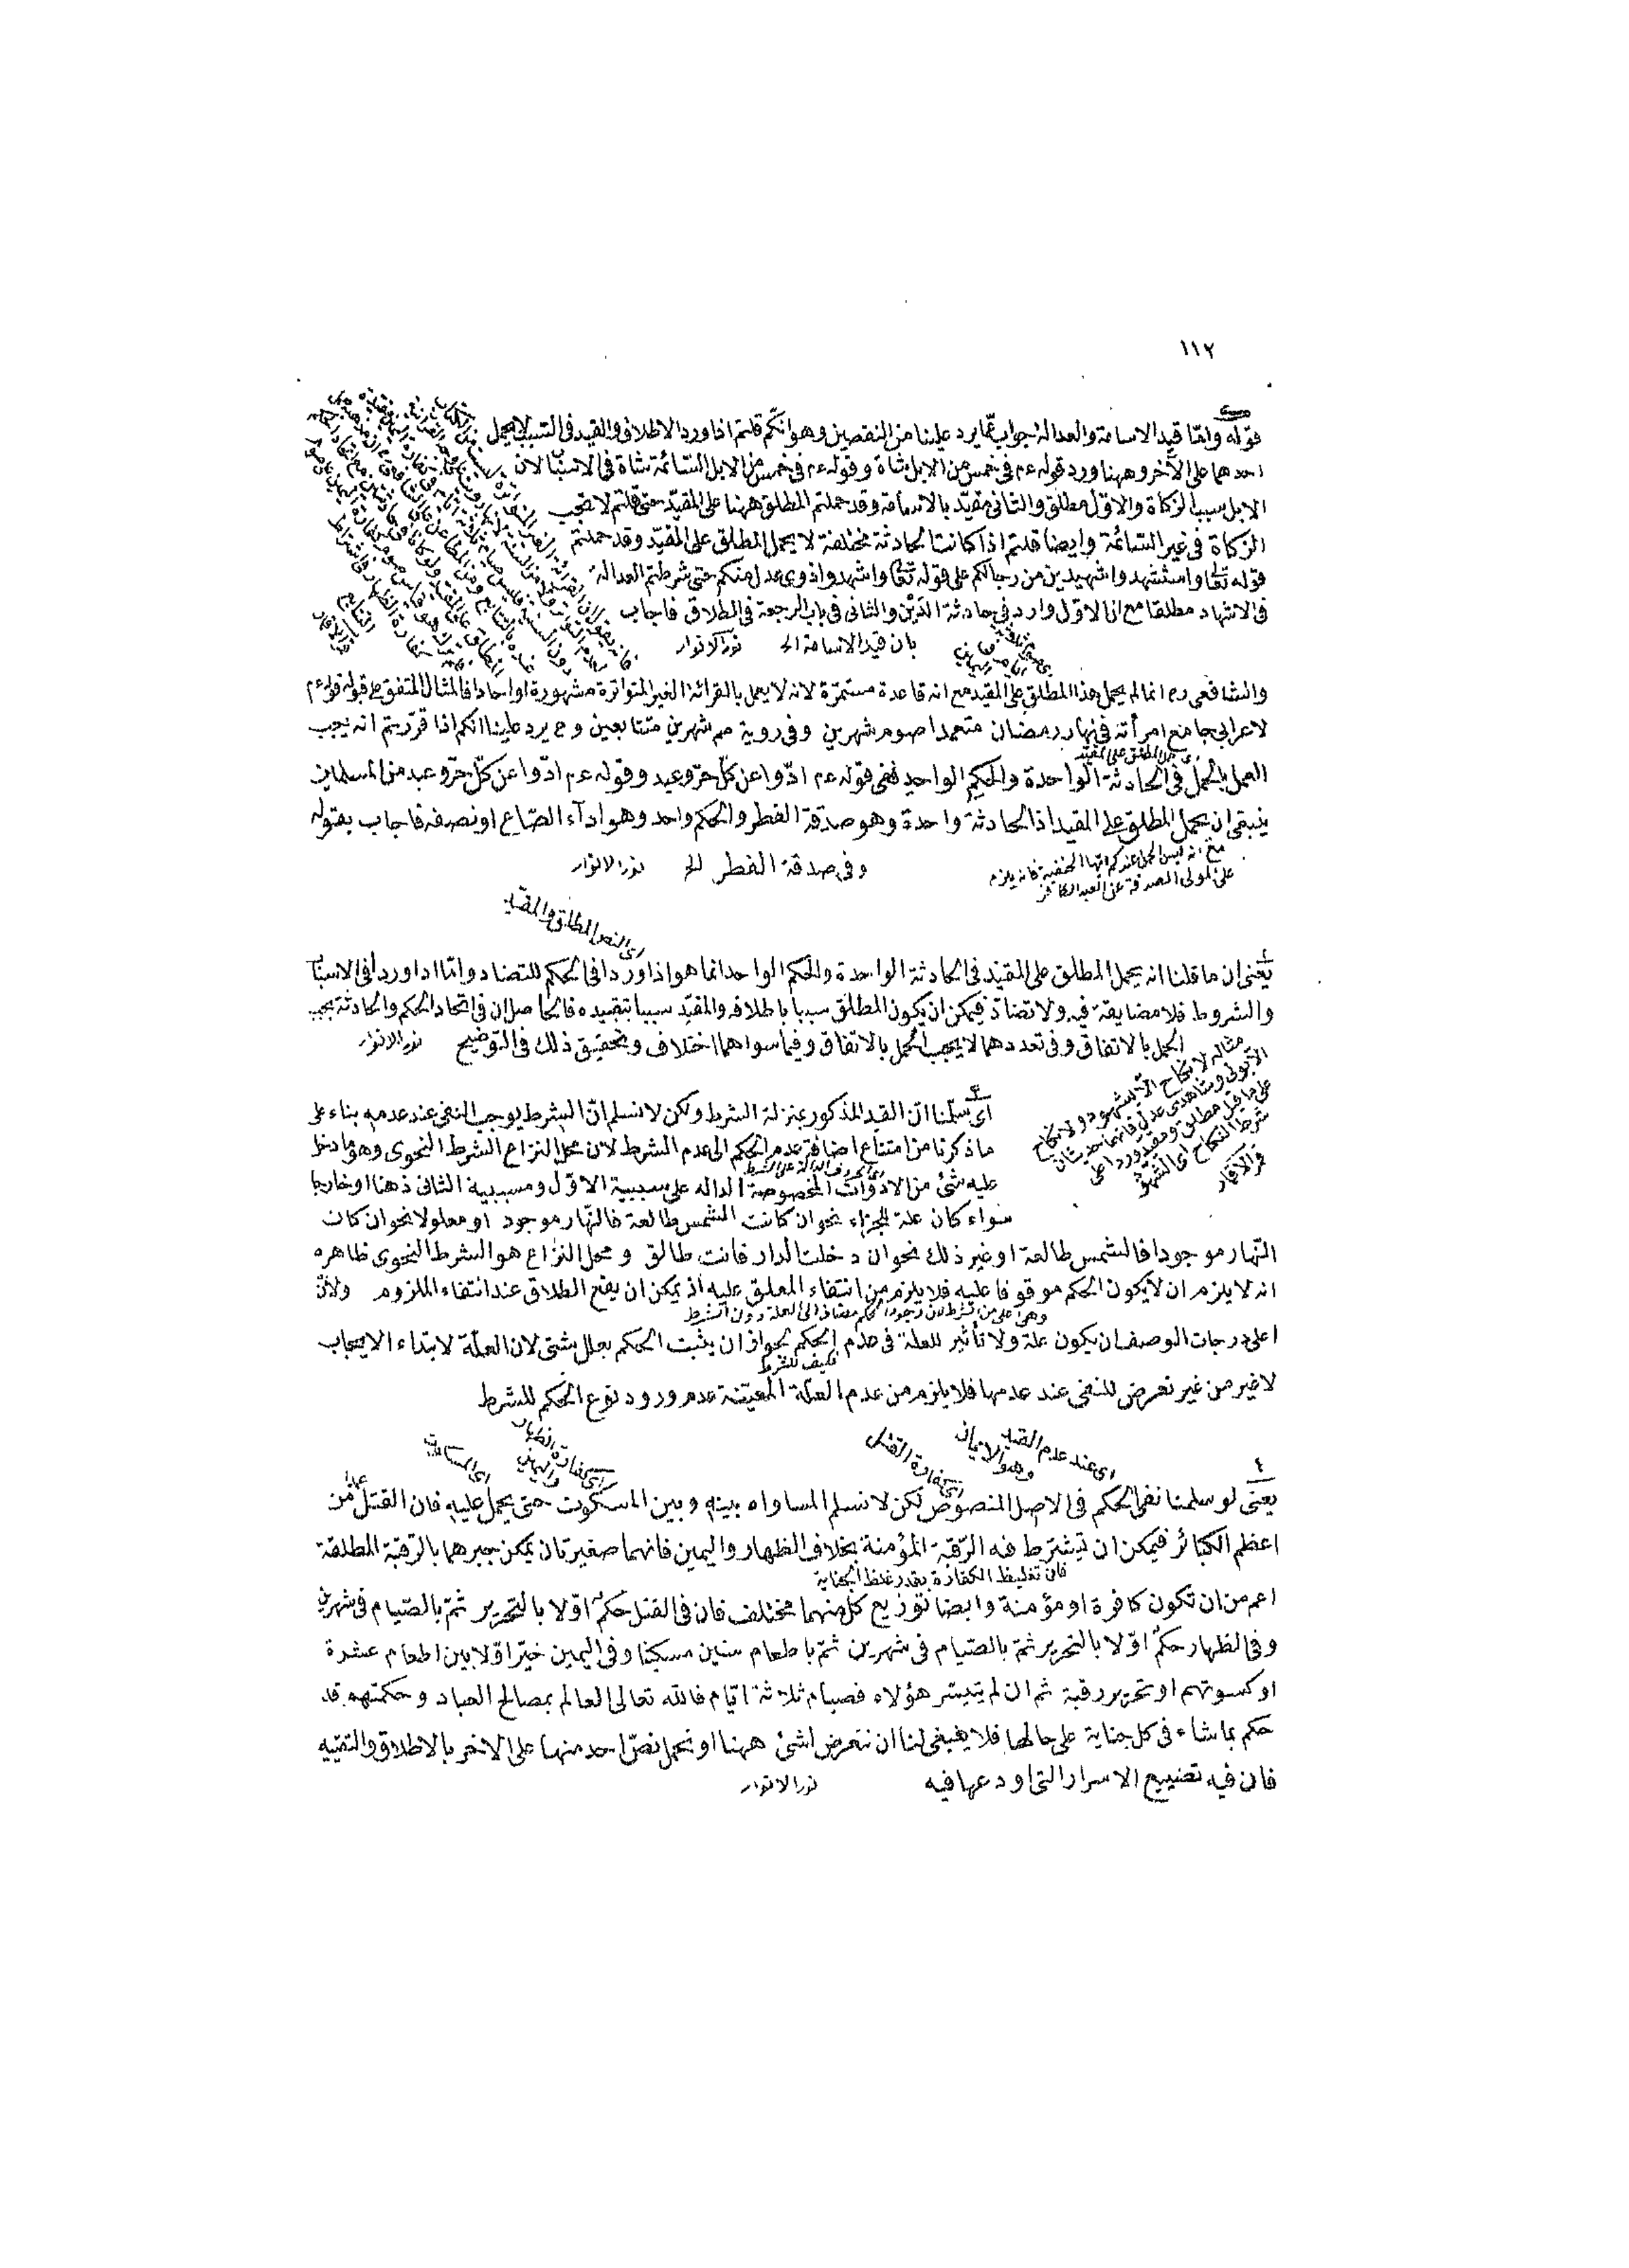 ١١٢
قوله وامّا قيد الاسامة والعدالة جواب عمّا يرد علينا من النقضين وهو انكم قلتم اذا ورد الاطلاق والقيد فى السبب لا يحمل
احدهما على الآخر وههنا ورد قوله عم فى خمس من الابل شاة وقوله عم فى خمس من الابل السّائمة شاة فى الاسباب لان
الابل سبب الزكاة والاوّل مطلق والثانى مقيّد بالاسامة وقد حملتم المطلق ههنا على المقيّد حتى قلتم لا تجب
الزكاة فى غير السّائمة وايضا قلتم اذا كانت الحادثة مختلفة لا يحمل المطلق على المقيّد وقد حملتم
قوله تعا واستشهدوا شهيدين من رجالكم على قوله تعا واشهدوا ذوى عدل منكم حتى شرطتم العدالة
فى الاشهاد مطلقا مع ان الاوّل وارد فى حادثة الدّيْن والثانى فى باب الرجعة فى الطلاق فاجاب
بان قيد الاسامة الخ نور الانوار
والشافعى رح انما لم يحمل هذا المطلق على المقيد مع انه قاعدة مستمرّة لانه لا يعمل بالقرائة الغير المتواترة مشهورة او احادا فالمثال المتفق على قبوله قوله عم
لاعرابى جامع امرأته فى نهار رمضان متعمدا صوم شهرين وفى روية صم شهرين متتابعين وح يرد علينا انكم اذا قرّرتم انه يجب
اى حمل المطلق على المقيّد
العمل بالحمل فى الحادثة الواحدة والحكم الواحد ففى قوله عم ادّوا عن كلّ حرّ وعبد وقوله عم ادّوا عن كلّ حرّ وعبد من المسلمين
ينبغى ان يحمل المطلق على المقيد اذ الحادثة واحدة وهو صدقة الفطر والحكم واحد وهو اداء الصّاع او نصفه فاجاب بقوله
وفى صدقة الفطر الخ نور الانوار
مع انه ليس الحمل عندكم ايها الحنفية فانه يلزم
على المولى الصدقة عن العبد الكافر
اى النص المطلق والمقيد
يعنى ان ما قلنا انه يحمل المطلق على المقيد فى الحادثة الواحدة والحكم الواحد انما هو اذا وردا فى الحكم للتضاد وامّا اذا وردا فى الاسباب
والشروط فلا مضايقة فيه ولا تضادّ فيمكن ان يكون المطلق سببا باطلاقه والمقيّد سببا بتقييده فالحاصل ان فى اتحاد الحكم والحادثة يجب
الحمل بالاتفاق وفى تعددهما لا يجب الحمل بالاتفاق وفيما سواهما اختلاف وتحقيق ذلك فى التوضيح نور الانوار
مثاله لا نكاح الا بشهود ولا نكاح
الا بولى وشاهدى عدل فانهما حديثان
على ما قيل مطلق ومقيد وردا على
شرط النكاح اى الشهود
قمر الاقمار
٣
اى سلّمنا انّ القيد المذكور بمنزلة الشرط ولكن لا نسلم انّ الشرط يوجب النفى عند عدمه بناء على
ما ذكرنا من امتناع اضافة عدم الحكم الى عدم الشرط لان محل النزاع الشرط النحوى وهو ما دخل
اى الحروف الدالة على الشرط
عليه شئ من الادوات المخصوصة الداله على سببية الاوّل ومسببية الثانى ذهنا او خارجا
سواء كان علة للجزاء نحو ان كانت الشمس طالعة فالنّهار موجود او معلولا نحو ان كان
النّهار موجودا فالشمس طالعة او غير ذلك نحو ان دخلت الدار فانت طالق ومحل النزاع هو الشرط النحوى ظاهره
انه لا يلزم ان لا يكون الحكم موقوفا عليه فلا يلزم من انتفاء المعلق عليه اذ يمكن ان يقع الطلاق عند انتفاء الملزوم ولان
وهى اعلى من الشرط لان وجود الحكم مضاف الى العلة دون الشرط
اعلى درجات الوصف ان يكون علة ولا تأثير للعلة فى عدم الحكم لجواز ان يثبت الحكم بعلل شتى لان العلّة لابتداء الايجاب
فكيف للشرط
لا غير من غير تعرض للنفى عند عدمها فلا يلزم من عدم العلّة المعيّنة عدم ورود نوع الحكم للشرط
اى عند عدم القيد
وهو الايمان
اى كفارة القتل
اى كفارة الظهار
واليمين
اى المساوات
٤
يعنى لو سلمنا نفى الحكم فى الاصل المنصوص لكن لا نسلم المساواه بينه وبين المسكوت حتى يحمل عليه فان القتل عمدا من
اعظم الكبائر فيمكن ان تشترط فيه الرّقبة المؤمنة بخلاف الظهار واليمين فانهما صغيرتان يمكن جبرهما بالرقبة المطلقة
فان تغليظ الكفارة بقدر غلظ الجناية
اعم من ان تكون كافرة او مؤمنة وايضا توزيع كلّ منهما مختلف فان فى القتل حكم اوّلا بالتحرير ثم بالصّيام فى شهرين
وفى الظهار حكم اوّلا بالتحرير ثم بالصّيام فى شهرين ثم باطعام ستين مسكينا وفى اليمين خيّر اوّلا بين اطعام عشرة
او كسوتهم او تحرير رقبة ثم ان لم يتيسر هؤلاء فصيام ثلاثة ايّام فالله تعالى العالم بمصالح العباد وحكمتهم قد
حكم بما شاء فى كل جناية على حالها فلا ينبغى لنا ان نتعرض لشئ ههنا او نحمل نصّ احد منها على الاخر بالاطلاق والتقييد
فان فيه تضييع الاسرار التى اودعها فيه نور الانوار